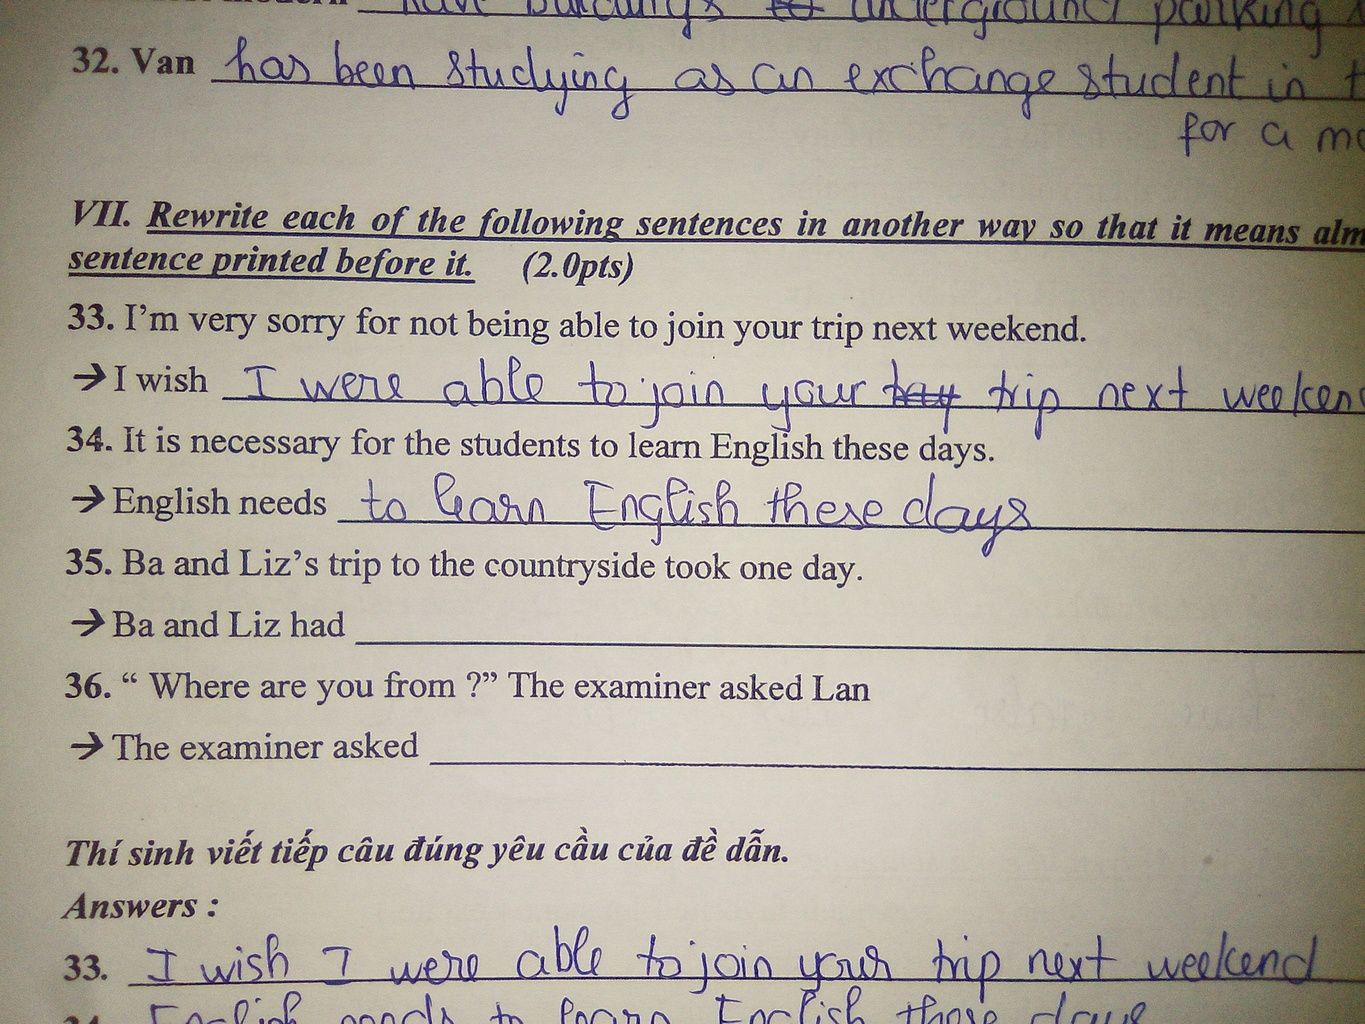 have buildings underground parking
32. Van has been studying as an exchange student in
for a
VII. Rewrite each of the following sentences in another way so that it means
sentence printed before it. (2.0pts)
33. I'm very sorry for not being able to join your trip next weekend.
→ I wish I were able to join your trip next weekend
34. It is necessary for the students to learn English these days.
→ English needs to learn English these days
35. Ba and Liz's trip to the countryside took one day.
→ Ba and Liz had
36. “ Where are you from ?” The examiner asked Lan
→ The examiner asked
Thí sinh viết tiếp câu đúng yêu cầu của đề dẫn.
Answers :
33. I wish I were able to join your trip next weekend
34. English needs to learn English these days